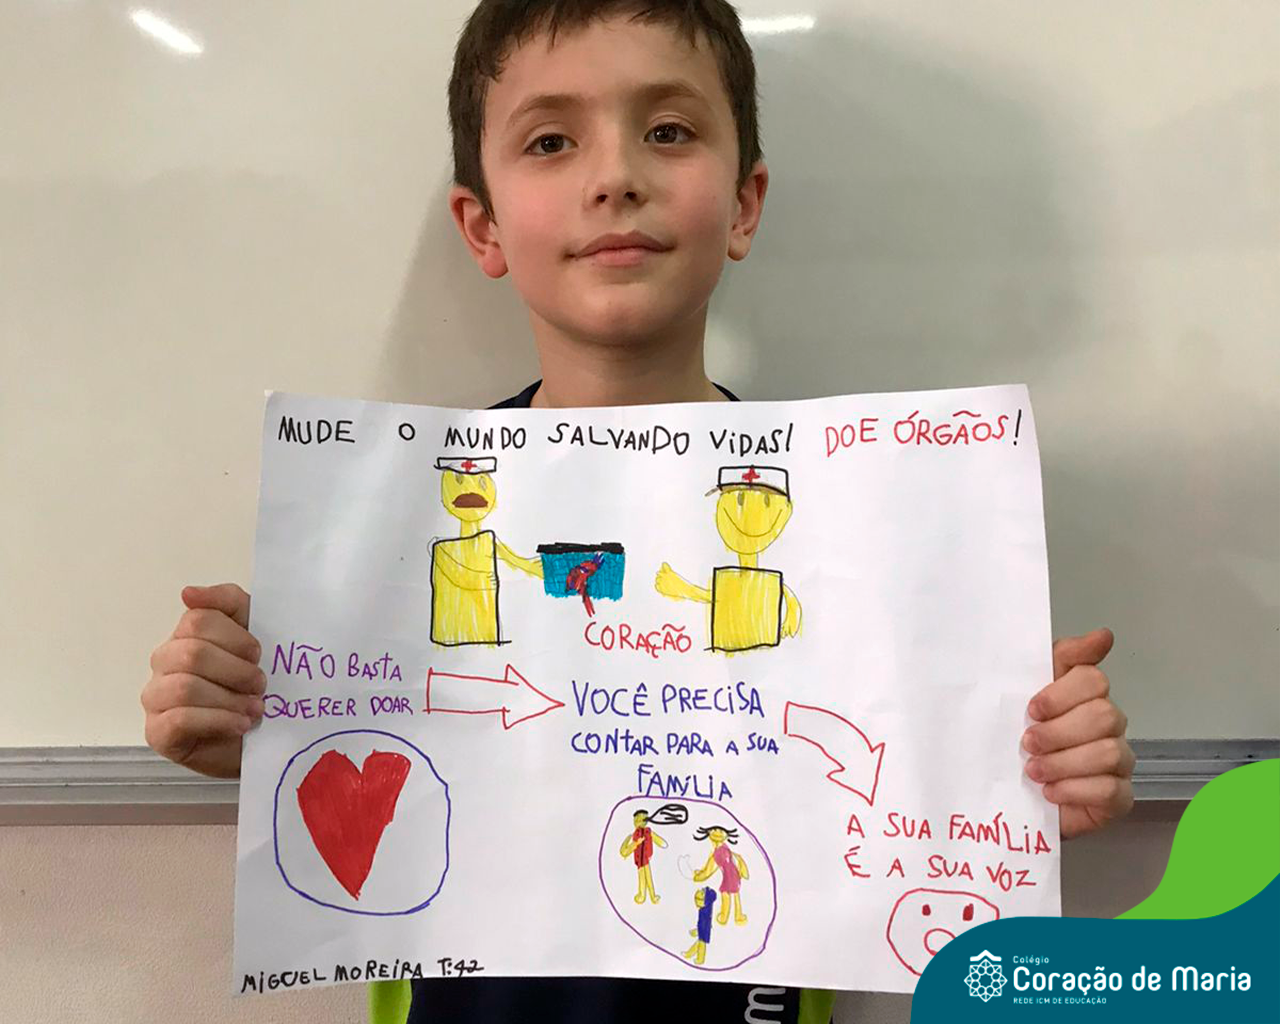 MUDE O MUNDO SALVANDO VIDAS! DOE ÓRGÃOS!
CORAÇÃO
NÃO BASTA
QUERER DOAR
VOCÊ PRECISA
CONTAR PARA A SUA
FAMÍLIA
A SUA FAMÍLIA
É A SUA VOZ
MIGUEL MOREIRA T:42
Colégio
Coração de Maria
REDE ICM DE EDUCAÇÃO